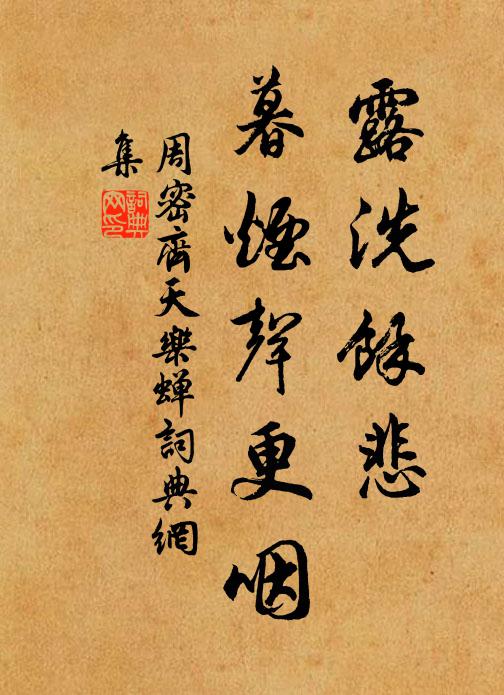 露洗餘悲
暮煙聲更咽
周密齊天樂蟬詞典網
集
詞典網印